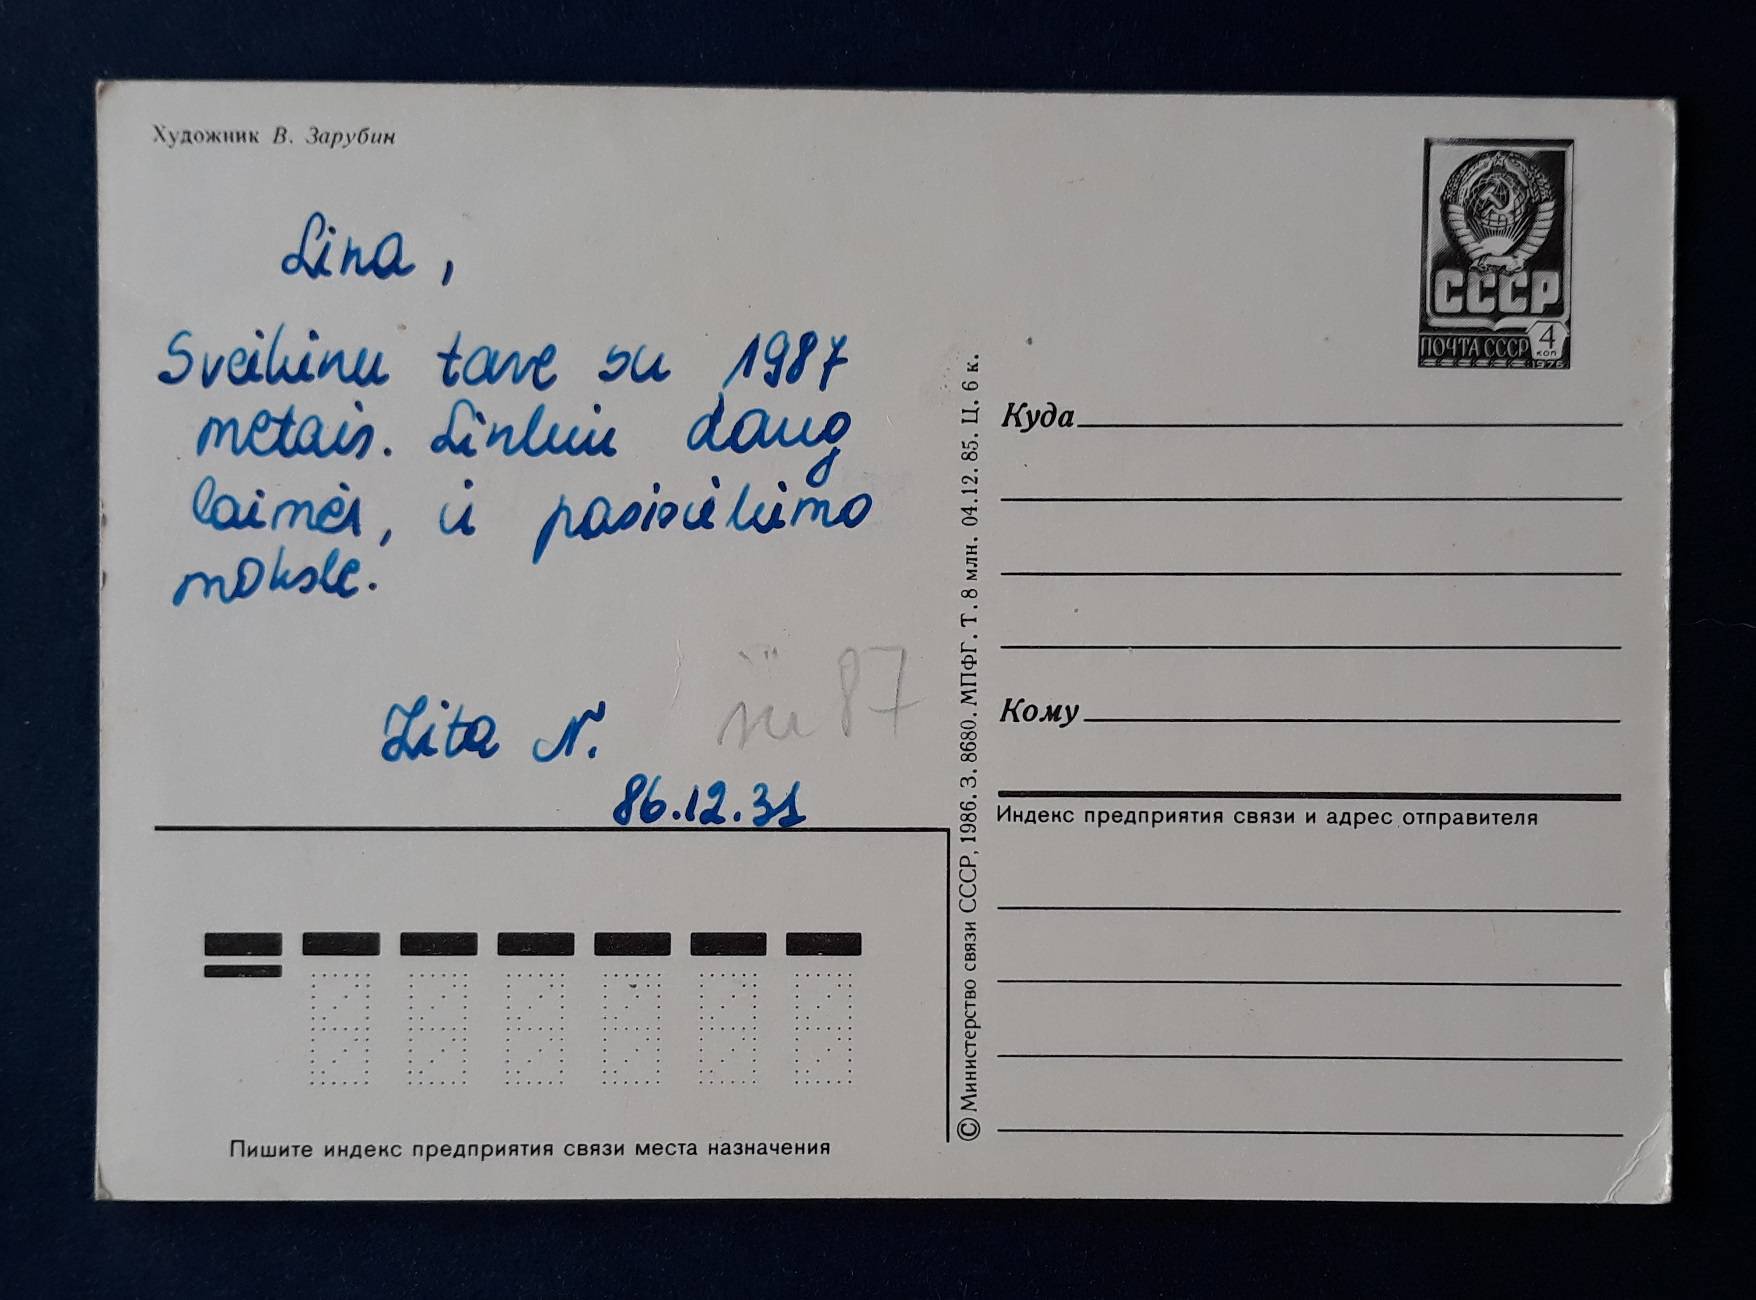 Художник В. Зарубин
Lina,
Sveikinu tave su 1987
metais. Linkiu daug
laimės, ir pasisekimo
moksle.
Zita N.
87
86.12.31
Пишите индекс предприятия связи места назначения
© Министерство связи СССР, 1986. З. 8680. МПФГ. Т. 8 млн. 04.12. 85. Ц. 6 к.
СССР
ПОЧТА СССР
4
коп
1976
Куда
Кому
Индекс предприятия связи и адрес отправителя